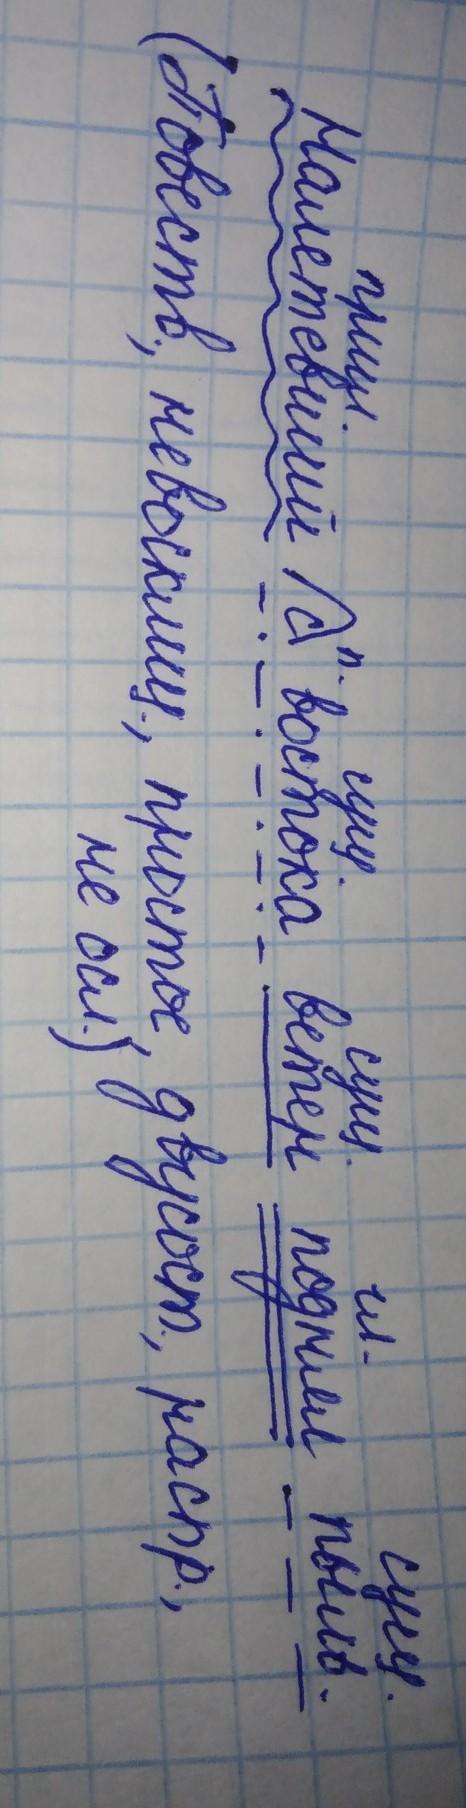 прич. п. сущ. сущ. гл. сущ.
Налетевший с востока ветер поднял пыль.
(Повеств., невосклиц., простое, двусост., распр.,
не осл.)